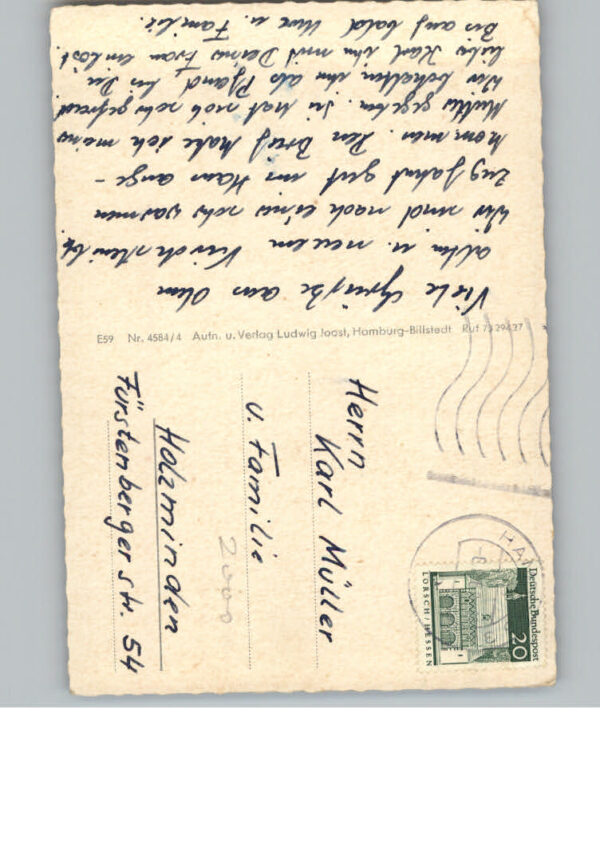 Viele Grüße aus dem
alten u. neuem
Wir sind nach einer sehr warmen
Zugfahrt gut in Ham ange-
kommen. Den Brief habe ich meine
Mutter gegeben. Sie hat sich sehr gefreut
Wir behalten ihn als Pfand bis Du
lieber Karl ihn mit Deine Frau einlöst.
Bis auf bald Uwe u. Familie.
E59 Nr. 4584/4 Aufn. u. Verlag Ludwig Joost, Hamburg-Billstedt Ruf 7329427
Herrn
Karl Müller
u. Familie
2000
Holzminden
Fürstenberger str. 54
HAM
Deutsche Bundespost
20
LORSCH/HESSEN